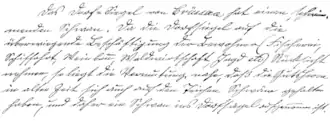 Das Dorfs Siegel von Brüssow hat einen schwim-
menden Schwan. Da die Dorfsiegel auf die
überwiegende Beschäftigung der Bewohner (Fischerei,
Schiffahrt, Weinbau, Waldwirtschaft, Jagd etc) Rücksicht
nehmen so liegt die Vermutung nahe, daß die Gutsherrn
in alter Zeit hier auf den Teichen Schwäne gehalten
haben und daher ein Schwan ins Dorfsiegel gekommen ist.